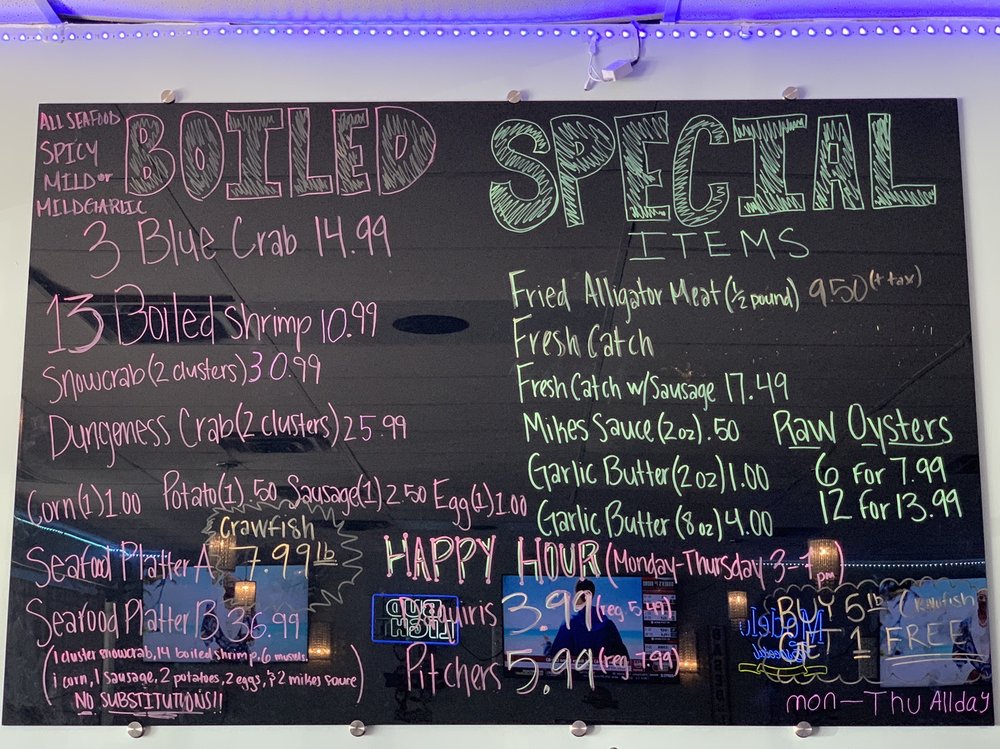 ALL SEAFOOD
SPICY
MILD or
MILD GARLIC
BOILED
3 Blue Crab 14.99
13 Boiled Shrimp 10.99
Snowcrab (2 clusters) 30.99
Dungeness Crab (2 clusters) 25.99
Corn (1) 1.00 Potato (1) .50 Sausage (1) 2.50 Egg (1) 1.00
Crawfish
7.99 lb
Seafood Platter A
Seafood Platter B 36.99
(1 cluster snowcrab, 14 boiled shrimp, 6 mussels
1 corn, 1 sausage, 2 potatoes, 2 eggs, 2 mikes sauce)
NO SUBSTITUTIONS!!
SPECIAL
ITEMS
Fried Alligator Meat (1/2 pound) 9.50 (+ tax)
Fresh Catch
Fresh Catch w/ Sausage 17.49
Mikes Sauce (2 oz) .50
Garlic Butter (2 oz) 1.00
Garlic Butter (8 oz) 4.00
Raw Oysters
6 For 7.99
12 For 13.99
HAPPY HOUR (Monday-Thursday 3-7 pm)
Daquiris 3.99 (reg. 5.49)
Pitchers 5.99 (reg. 7.99)
BUY 5 lb
GET 1 FREE
mon-Thu All day